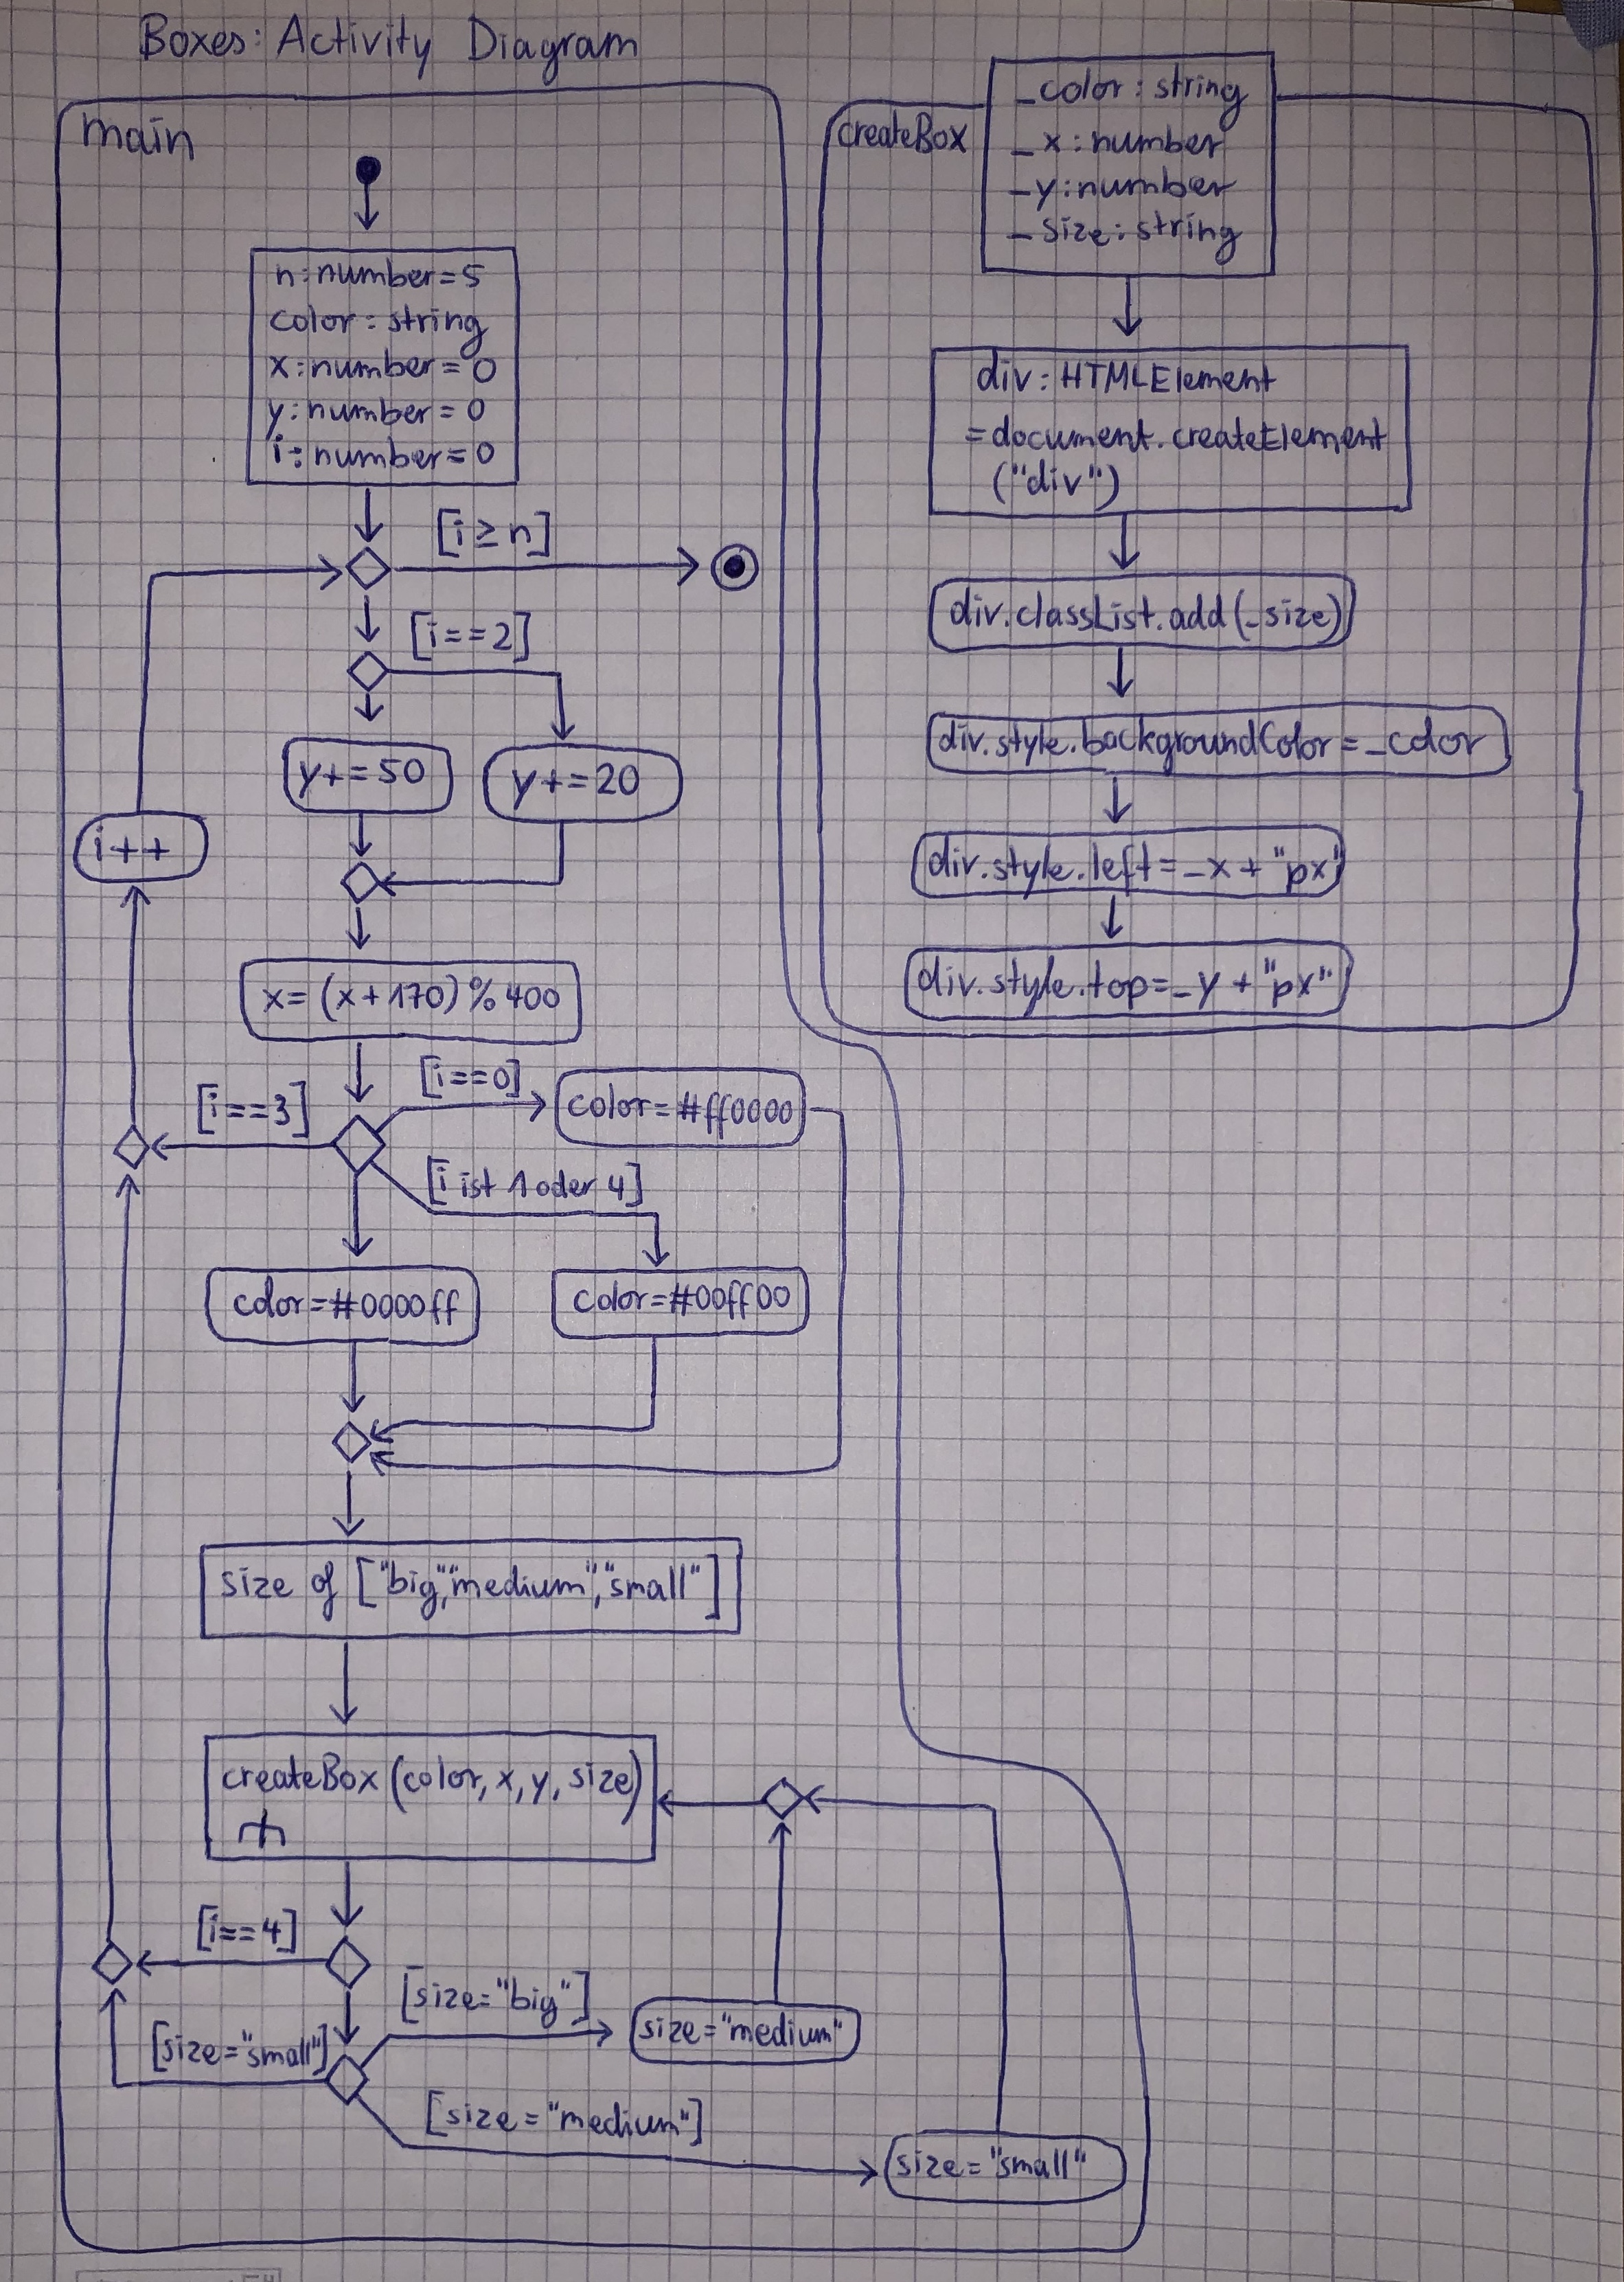 Boxes: Activity Diagram
main
n:number=5
color: string
x:number=0
y:number=0
i:number=0
[i≥n]
[i==2]
y+=50
y+=20
i++
x=(x+170)%400
[i==0]
color=#ff0000
[i==3]
[i ist 1 oder 4]
color=#0000ff
color=#00ff00
size of ["big","medium","small"]
createBox(color,x,y,size)
[i==4]
[size="big"]
size="medium"
[size="small"]
[size="medium"]
size="small"
createBox
_color: string
_x:number
_y:number
_size: string
div: HTMLElement
=document.createElement
("div")
div.classList.add(_size)
div.style.backgroundColor=_color
div.style.left=_x+"px"
div.style.top=_y+"px"